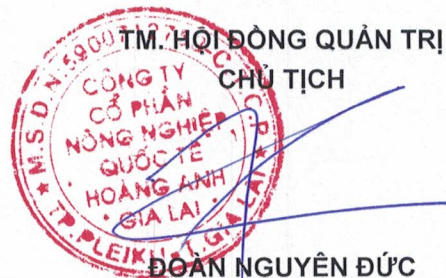 TM. HỘI ĐỒNG QUẢN TRỊ
CHỦ TỊCH
CÔNG TY
CỔ PHẦN
NÔNG NGHIỆP
QUỐC TẾ
HOÀNG ANH
GIA LAI
TP.PLEIKU - T.GIA LAI
ĐOÀN NGUYÊN ĐỨC